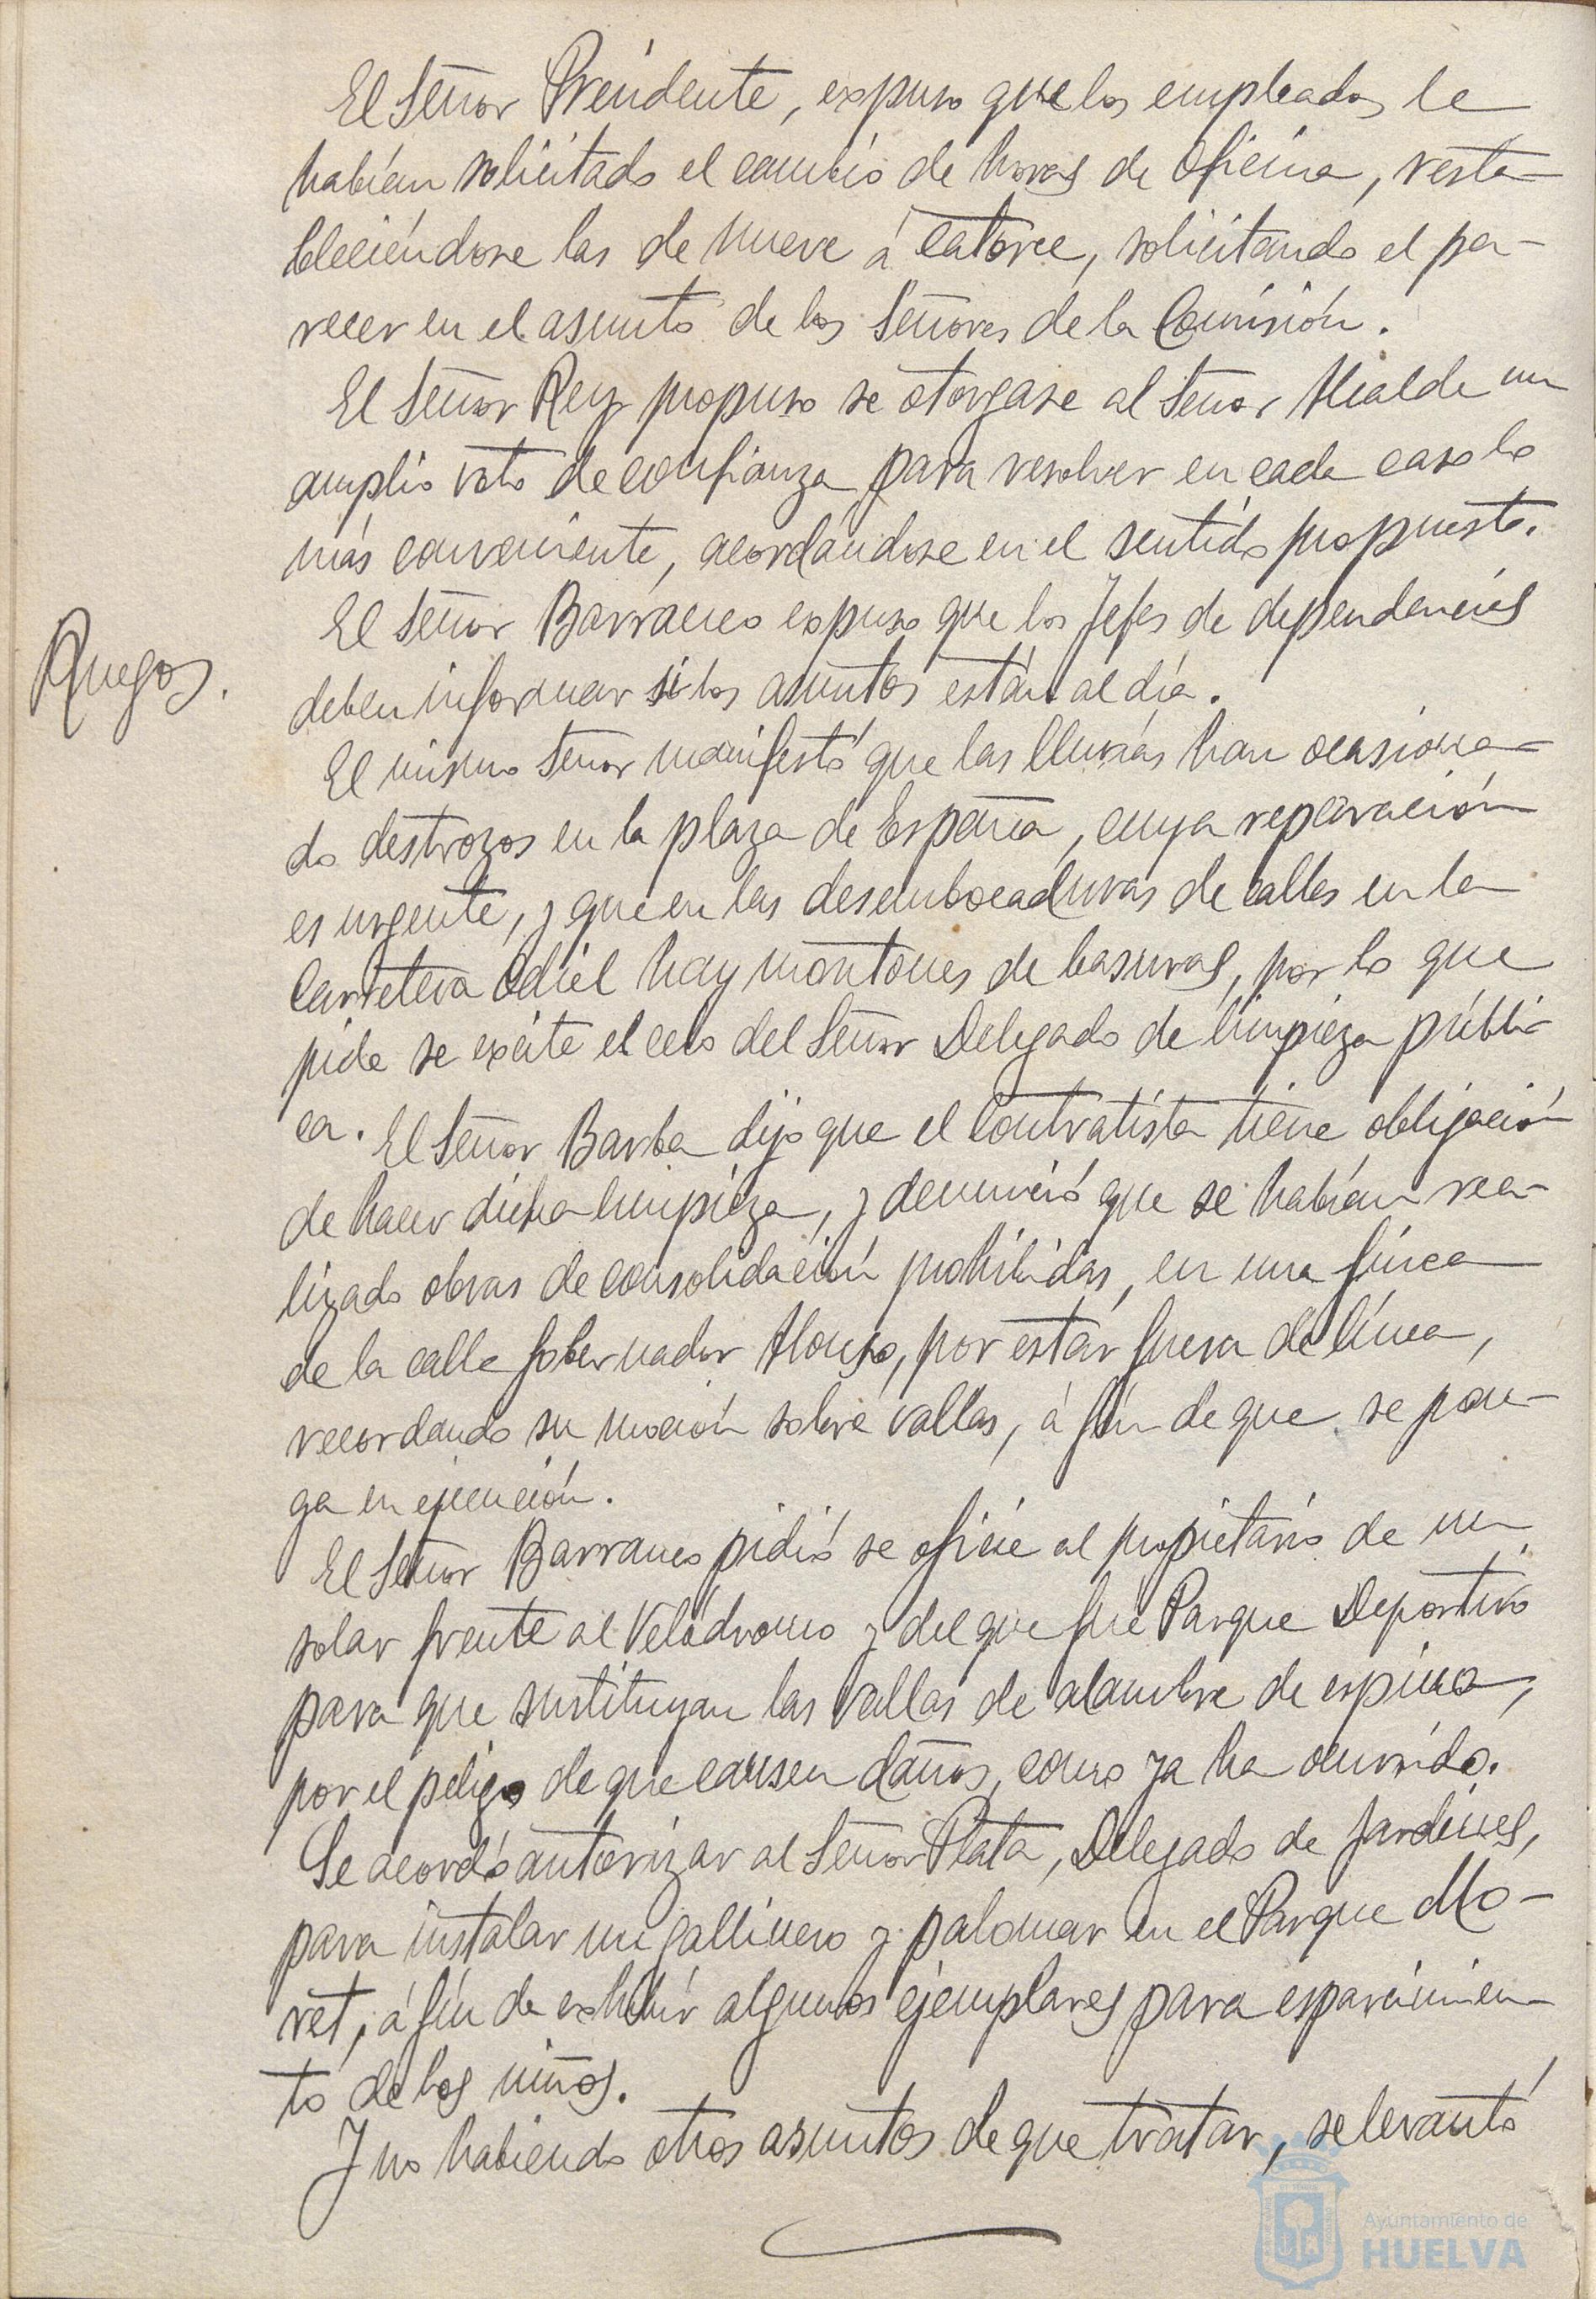 El Señor Presidente, expuso que los empleados le
habían solicitado el cambio de horas de oficina, resta-
bleciéndose las de nueve á catorce, solicitando el pa-
recer en el asunto de los Señores de la Comisión.
El Señor Rey propuso se otorgase al Señor Alcalde un
amplio voto de confianza para resolver en cada caso lo
más conveniente, acordándose en el sentido propuesto.
Ruegos.
El Señor Barranco expuso que los Jefes de dependencias
deben informar si los asuntos están al día.
El mismo Señor manifestó que las lluvias han ocasiona-
do destrozos en la plaza de España, cuya reparación
es urgente, y que en las desembocaduras de calles en la
Carretera Odiel hay montones de basuras, por lo que
pide se excite el celo del Señor Delegado de limpieza públi-
ca. El Señor Barba dijo que el Contratista tiene obligación
de hacer dicha limpieza, y denunció que se habían rea-
lizado obras de consolidación prohibidas, en una finca
de la calle Gobernador Alonso, por estar fuera de línea,
recordando su moción sobre vallas, á fin de que se pon-
ga en ejecución.
El Señor Barranco pidió se oficie al propietario de un
solar frente al Velódromo y del que fué Parque Deportivo
para que sustituyan las vallas de alambre de espino,
por el peligo de que causen daños, como ya ha ocurrido.
Se acordó autorizar al Señor Plata, Delegado de Jardines,
para instalar un gallinero y palomar en el Parque Mo-
ret, á fin de exhibir algunos ejemplares para esparcimien-
to de los niños.
Y no habiendo otros asuntos de que tratar, se levantó
Ayuntamiento de
HUELVA